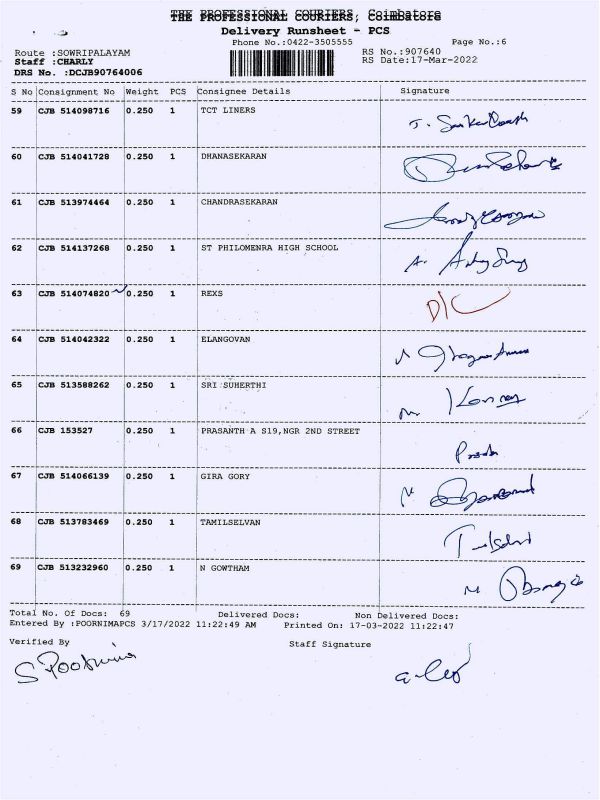 THE PROFESSIONAL COURIERS, Coimbatore
Delivery Runsheet - PCS
Phone No.:0422-3505555 Page No.:6
Route :SOWRIPALAYAM RS No.:907640
Staff :CHARLY RS Date:17-Mar-2022
DRS No. :DCJB90764006
S No Consignment No Weight PCS Consignee Details Signature
59 CJB 514098716 0.250 1 TCT LINERS
60 CJB 514041728 0.250 1 DHANASEKARAN
61 CJB 513974464 0.250 1 CHANDRASEKARAN
62 CJB 514137268 0.250 1 ST PHILOMENRA HIGH SCHOOL
63 CJB 514074820 0.250 1 REXS D/C
64 CJB 514042322 0.250 1 ELANGOVAN
65 CJB 513588262 0.250 1 SRI SUHERTHI
66 CJB 153527 0.250 1 PRASANTH A S19,NGR 2ND STREET
67 CJB 514066139 0.250 1 GIRA GORY
68 CJB 513783469 0.250 1 TAMILSELVAN
69 CJB 513232960 0.250 1 N GOWTHAM
Total No. Of Docs: 69 Delivered Docs: Non Delivered Docs:
Entered By :POORNIMAPCS 3/17/2022 11:22:49 AM Printed On: 17-03-2022 11:22:47
Verified By Staff Signature
S Poornima